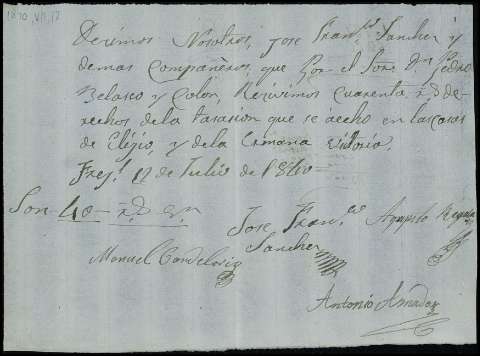 1840, VII, 17
Decimos Nosotros, Jose Franco. Sancher y
demas Compañeros, que Por el Sor. Dn. Pedro
Belasco y Colón, Recivimos Cuarenta rs de-
rechos de la tasasion que se a echo en las casas
de Eligio, y de la Ermana
Frejl. 17 de Julio de 1840
Son 40 rs
Jose Franco.
Sancher
Agusto
Manuel Candelario
Antonio Amador